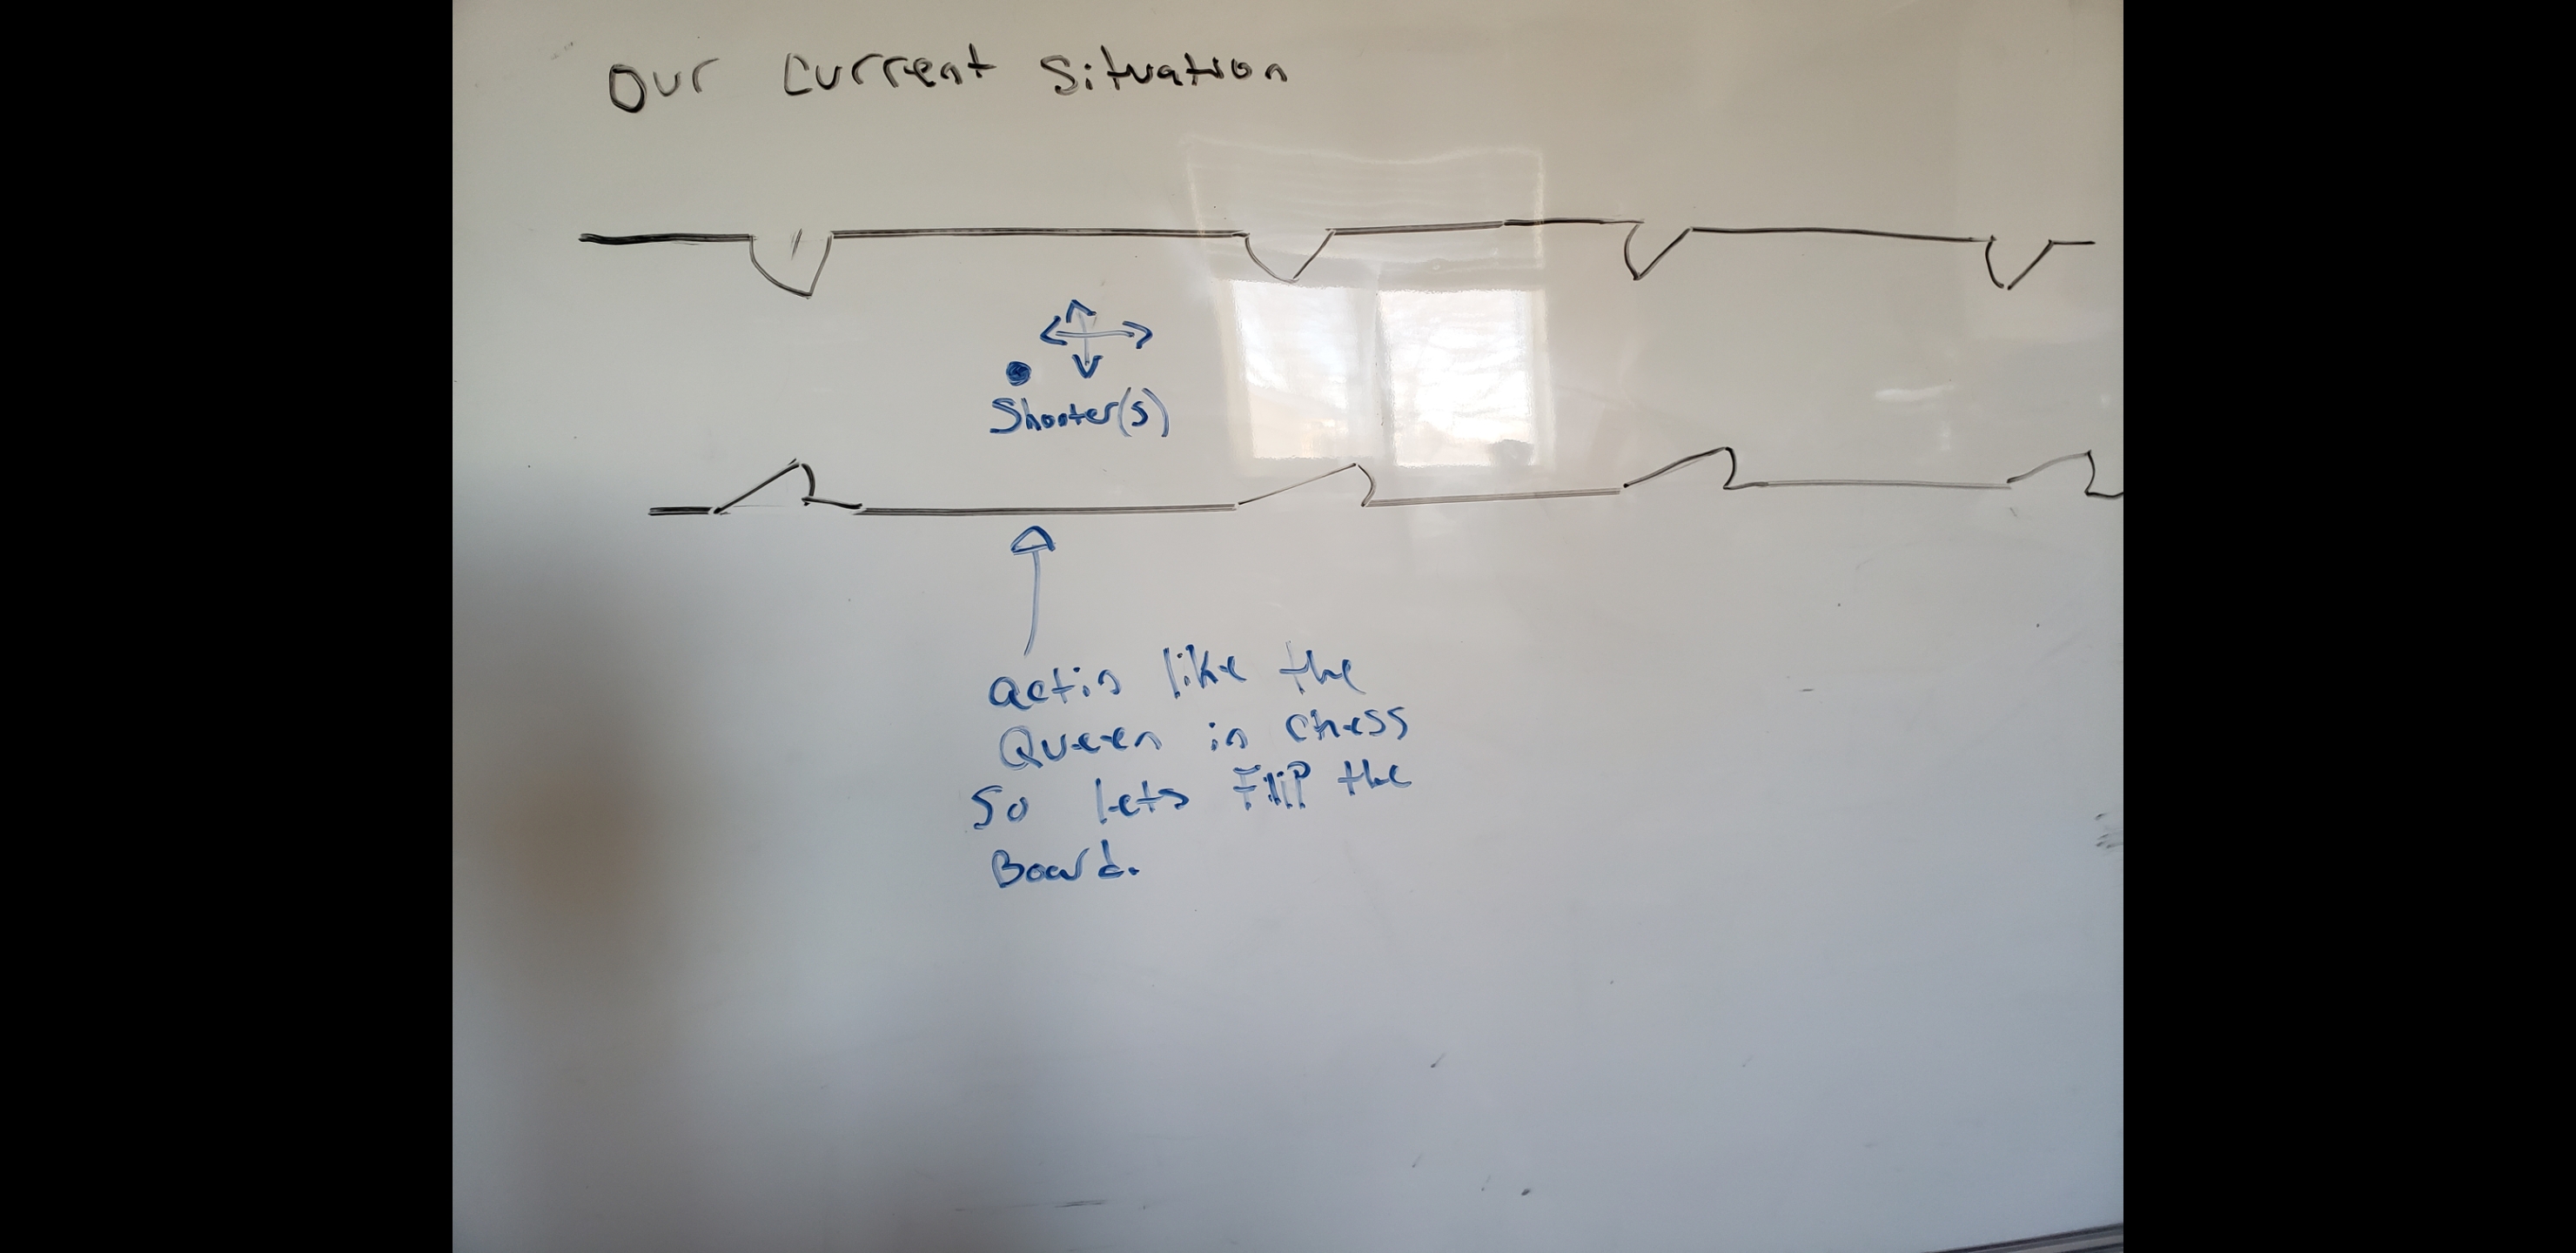 Our Current Situation
Shooter(s)
actin like the
Queen in chess
So lets Flip the
Board.